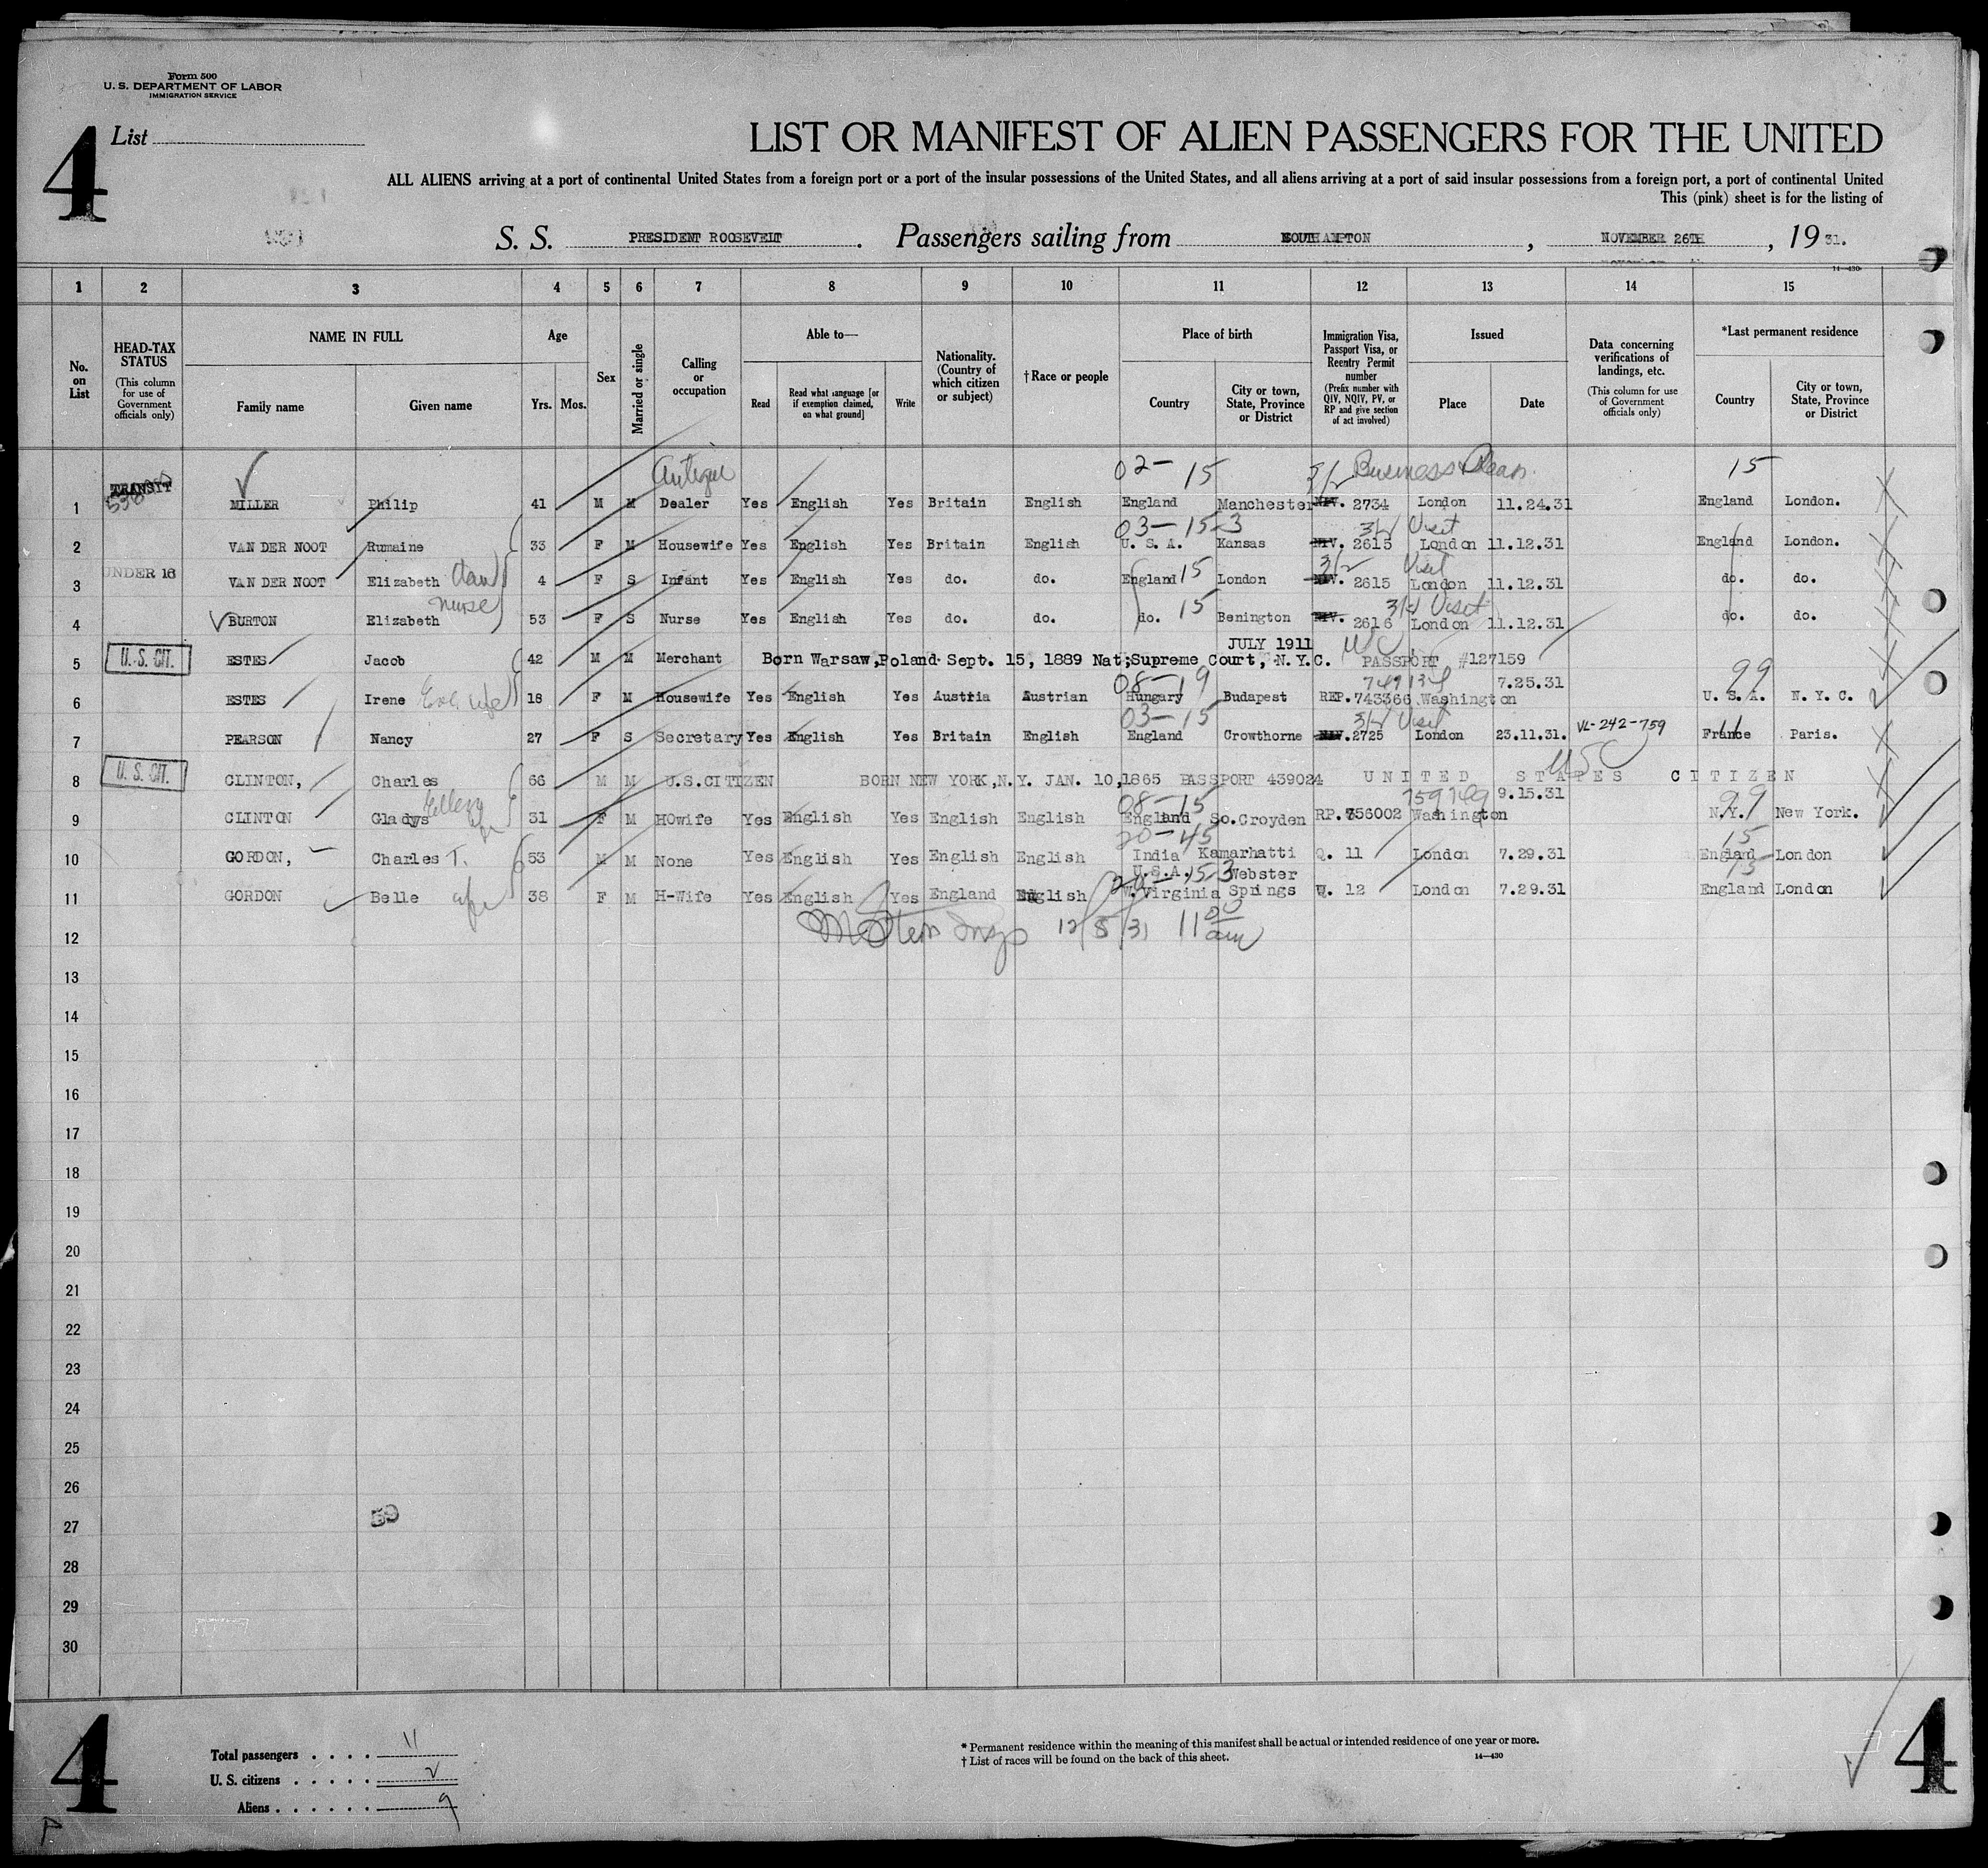 Form 500
U. S. DEPARTMENT OF LABOR
IMMIGRATION SERVICE
4
List
LIST OR MANIFEST OF ALIEN PASSENGERS FOR THE UNITED
ALL ALIENS arriving at a port of continental United States from a foreign port or a port of the insular possessions of the United States, and all aliens arriving at a port of said insular possessions from a foreign port, a port of continental United
This (pink) sheet is for the listing of
S. S. PRESIDENT ROOSEVELT. Passengers sailing from SOUTHAMPTON, NOVEMBER 26TH, 19 31.
14—430
1 2 3 4 5 6 7 8 9 10 11 12 13 14 15
No. on List
HEAD-TAX STATUS (This column for use of Government officials only)
NAME IN FULL Family name Given name
Age Yrs. Mos.
Sex
Married or single
Calling or occupation
Able to— Read Read what language [or if exemption claimed, on what ground] Write
Nationality. (Country of which citizen or subject)
†Race or people
Place of birth Country City or town, State, Province or District
Immigration Visa, Passport Visa, or Reentry Permit number (Prefix number with QIV, NQIV, PV, or RP and give section of act involved)
Issued Place Date
Data concerning verifications of landings, etc. (This column for use of Government officials only)
*Last permanent residence Country City or town, State, Province or District
TRANSIT Antique 02-15 3/2 Business 15
1 MILLER Philip 41 M M Dealer Yes English Yes Britain English England Manchester NIV. 2734 London 11.24.31 England London.
03-15-3 3/2 Visit
2 VAN DER NOOT Rumaine 33 F M Housewife Yes English Yes Britain English U. S. A. Kansas NIV. 2615 London 11.12.31 England London.
UNDER 16 3/2 Visit
3 VAN DER NOOT Elizabeth 4 F S Infant Yes English Yes do. do. England 15 London NIV. 2615 London 11.12.31 do. do.
nurse 15 3/2 Visit
4 BURTON Elizabeth 53 F S Nurse Yes English Yes do. do. do. Benington NIV. 2616 London 11.12.31 do. do.
JULY 1911
5 U. S. CIT. ESTES Jacob 42 M M Merchant Born Warsaw, Poland Sept. 15, 1889 Nat; Supreme Court, N.Y.C. PASSPORT #127159
08-19 7.25.31 99
6 ESTES Irene wife 18 F M Housewife Yes English Yes Austria Austrian Hungary Budapest REP. 743366 Washington U. S. A. N. Y. C.
03-15 3/2 Visit VL-242-759
7 PEARSON Nancy 27 F S Secretary Yes English Yes Britain English England Crowthorne NIV. 2725 London 23.11.31. France Paris.
USC
8 U. S. CIT. CLINTON, Charles 66 M M U.S.CITIZEN BORN NEW YORK,N.Y. JAN. 10,1865 PASSPORT 439024 UNITED STATES CITIZEN
08-15 759749 9.15.31 99
9 CLINTON Gladys 31 F M HOwife Yes English Yes English English England So.Croyden RP. 756002 Washington N.Y. New York.
20-45 15
10 GORDON, Charles T. 53 M M None Yes English Yes English English India Kamarhatti Q. 11 London 7.29.31 England London
U.S.A. 15-3 Webster 15
11 GORDON Belle wife 38 F M H-Wife Yes English Yes England English W.Virginia Springs W. 12 London 7.29.31 England London
12 12/5/31 11 00 am
13
14
15
16
17
18
19
20
21
22
23
24
25
26
27
28
29
30
4
Total passengers . . . . 11
U. S. citizens . . . . . 2
Aliens . . . . . . 9
* Permanent residence within the meaning of this manifest shall be actual or intended residence of one year or more.
† List of races will be found on the back of this sheet.
14—430
4